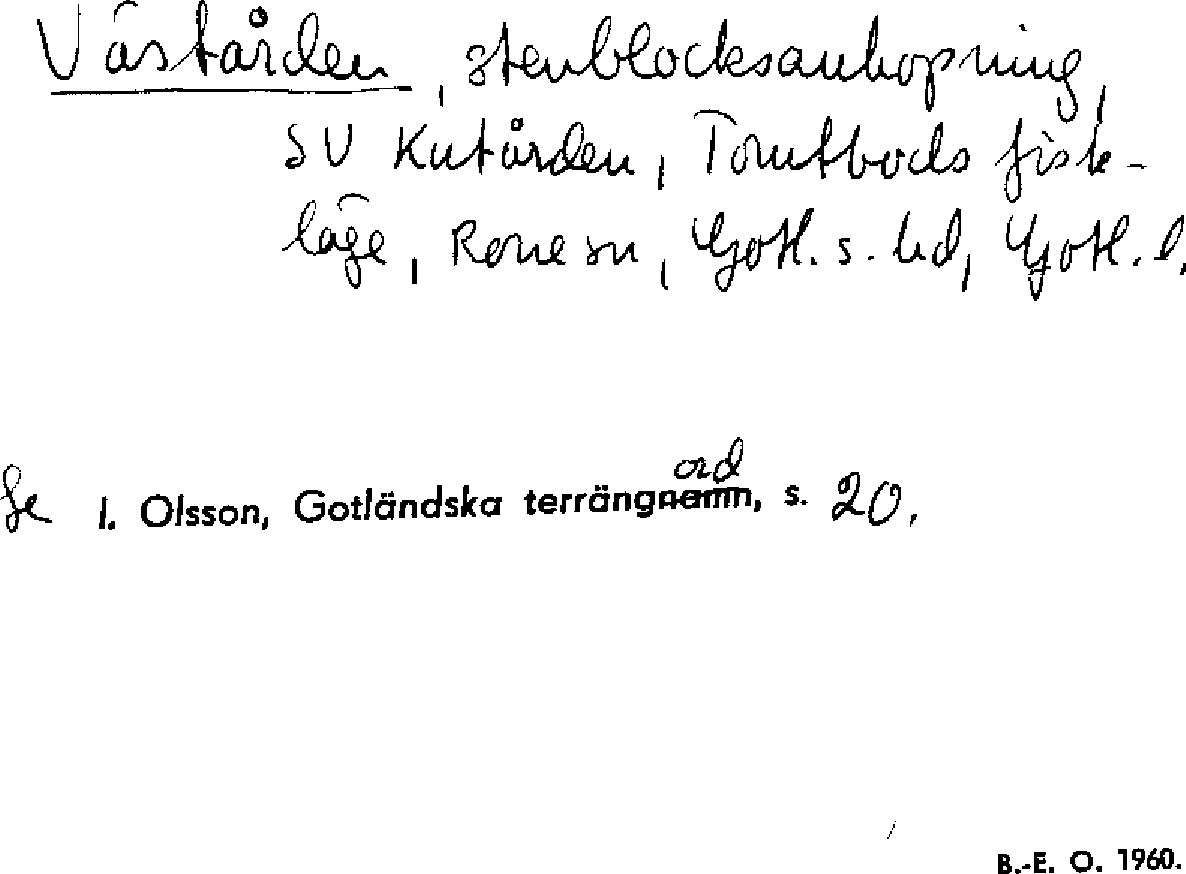 Västården, stenblocksanhopning,
SV Kutården, Tomtbods fisk-
läge, Rone sn, Gotl. s. hd, Gotl. l.
Se I. Olsson, Gotländska terrängord, s. 20.
B.-E. O. 1960.